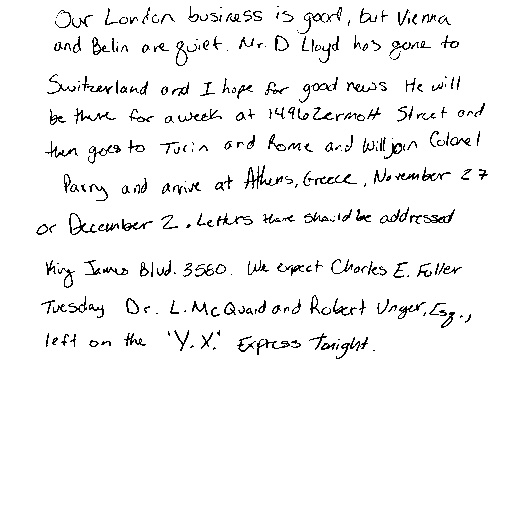 Our London business is good, but Vienna
and Belin are quiet. Mr. D Lloyd has gone to
Switzerland and I hope for good news He will
be there for a week at 1496 Zermott Street and
then goes to Turin and Rome and will join Colonel
Parry and arrive at Athens, Greece, November 27
or December 2. Letters there should be addressed
King James Blvd. 3580. We expect Charles E. Fuller
Tuesday Dr. L. McQuaid and Robert Unger, Esq.,
left on the "Y.X." Express Tonight.